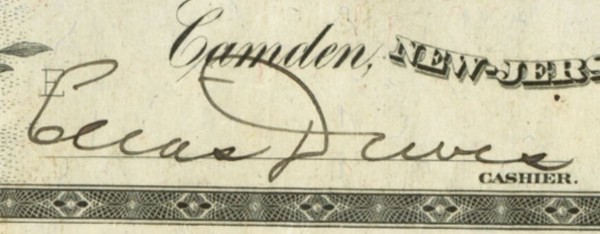 Camden, NEW-JERS
E
Elias Davis
CASHIER.